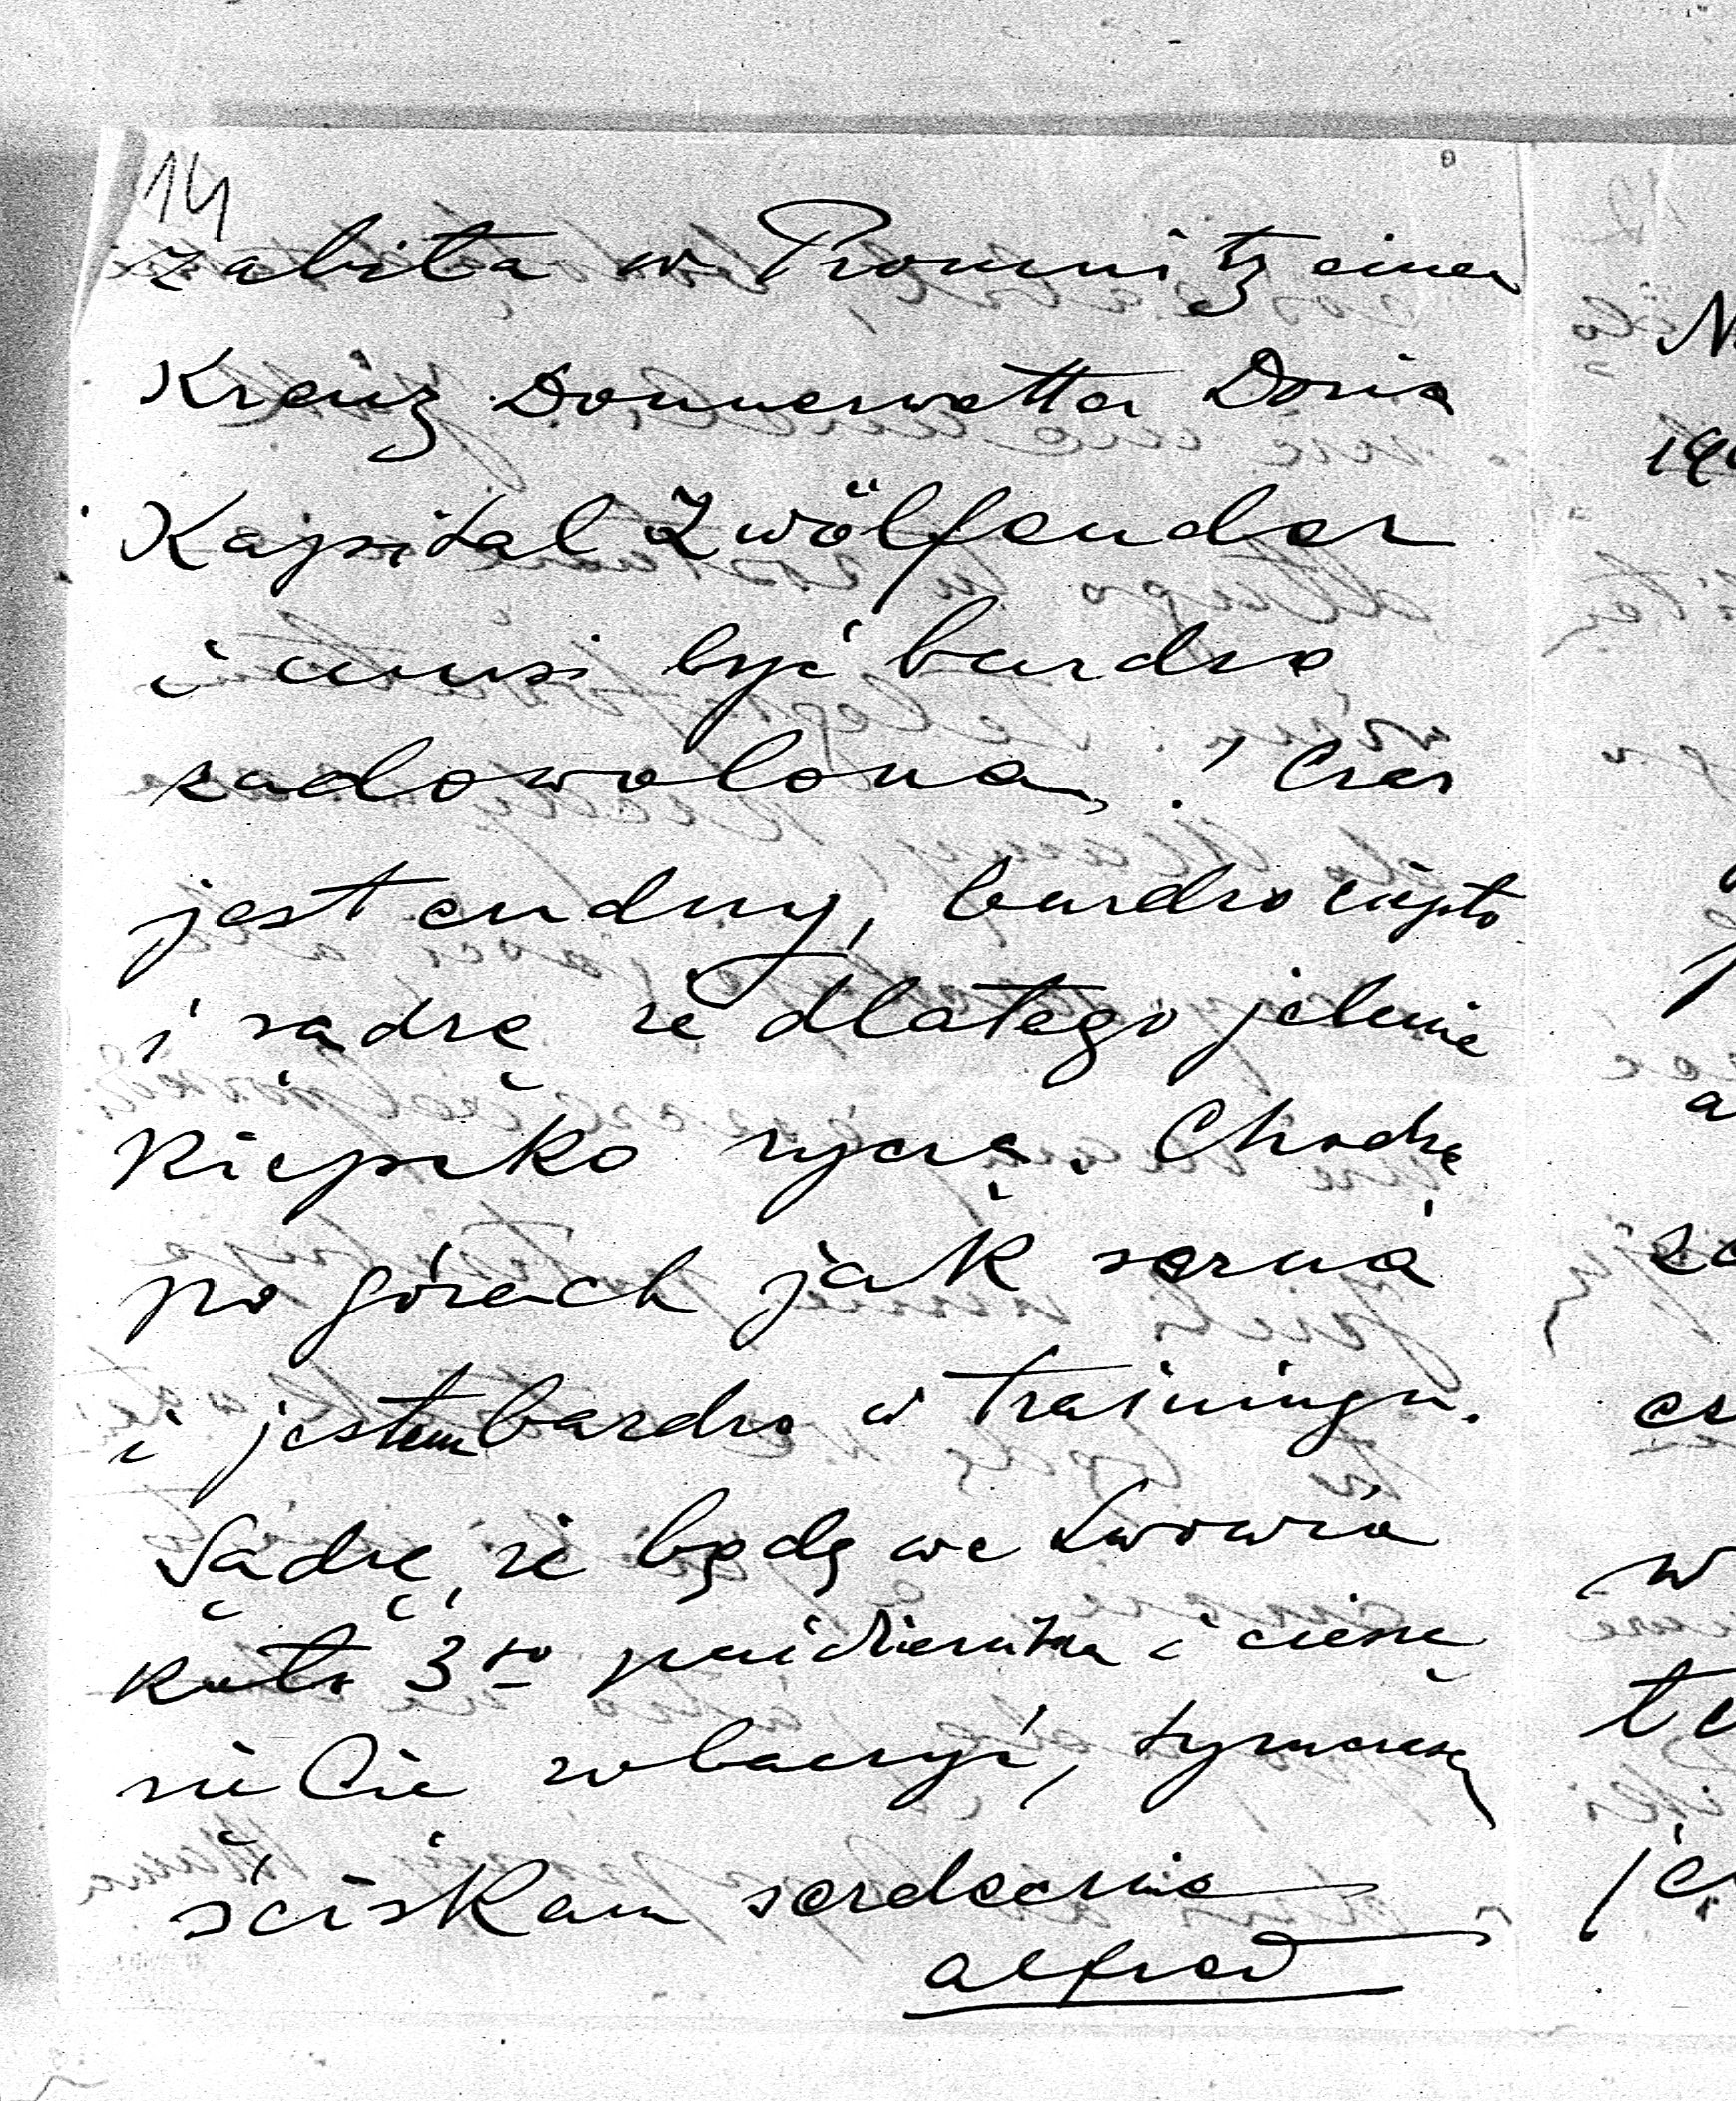 14
zabiła w Promnitz einen
Kreuz Donnerwetter Doria
Kapital Zwölfender
i musi być bardzo
zadowolona! Czas
jest cudny, bardzo ciepło
i sądzę że dlatego jelenie
kiepsko ryczą. Chodzę
po górach jak sarna
i jestem bardzo w trainingu.
Sądzę, że będę we Lwowie
koło 3go października i cieszę
się Cię zobaczyć, tymczasem
ściskam serdecznie
Alfred